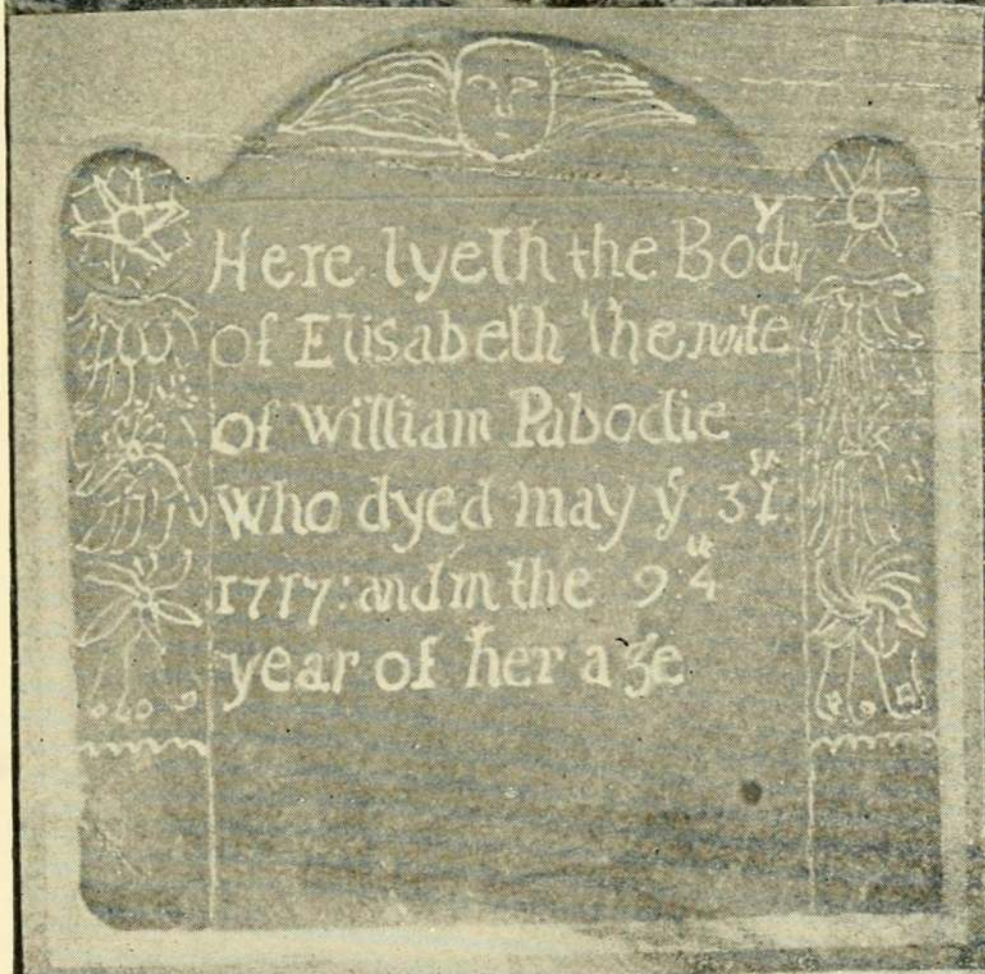 Here lyeth the Body
of Elisabeth the wife
of william Pabodie
who dyed may yᵉ 31ˢᵗ
1717: and in the 94ᵗʰ
year of her age